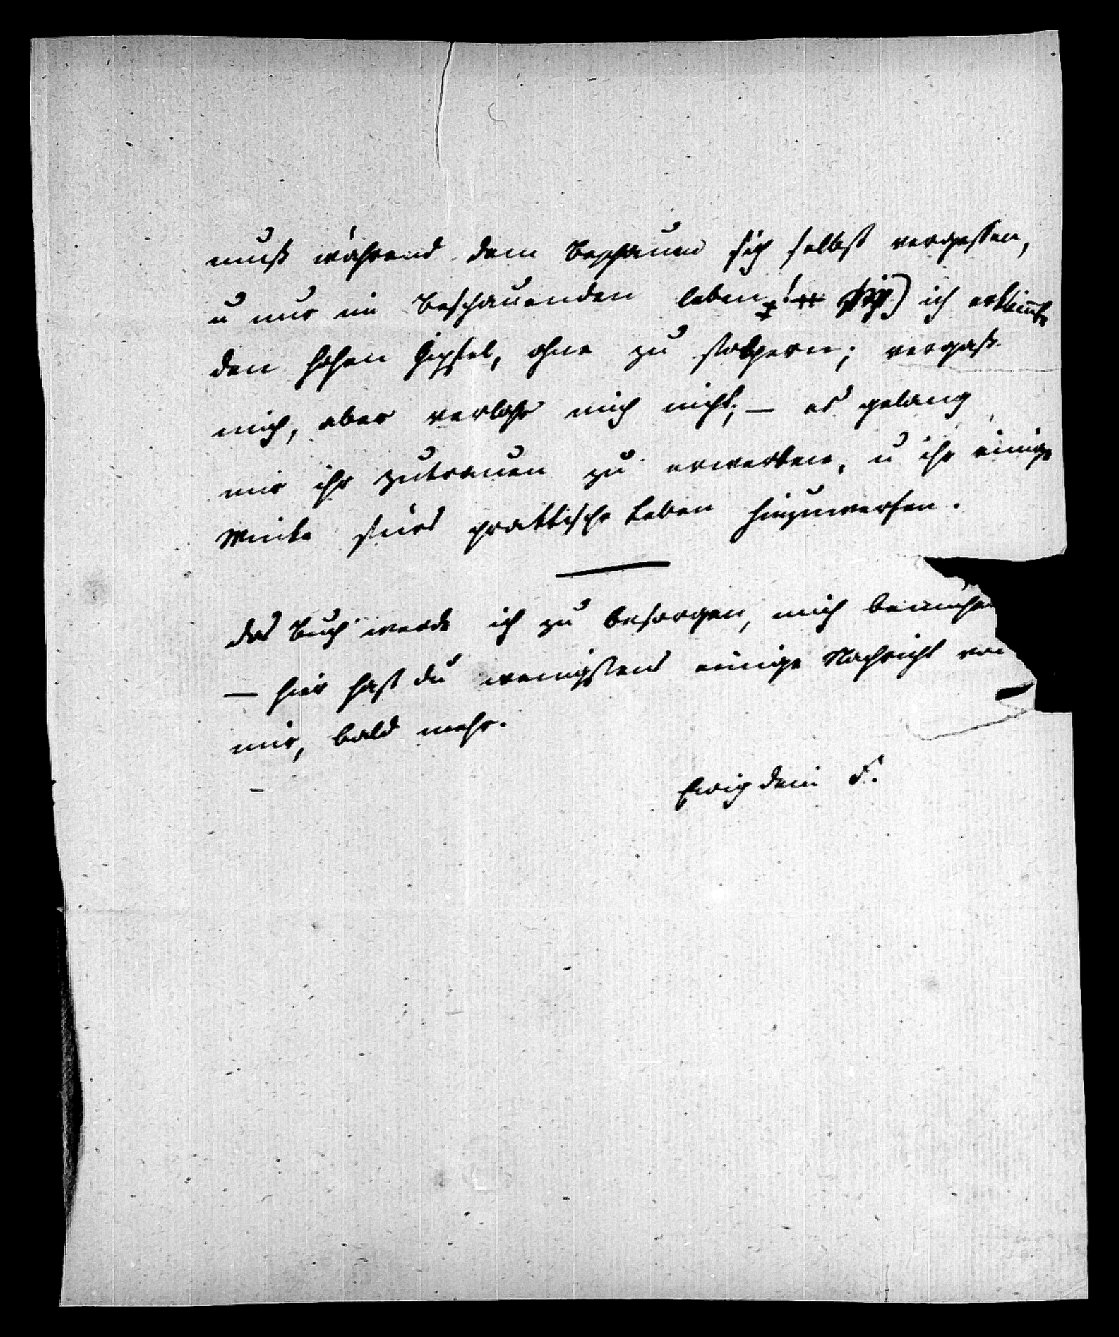 muß während dem Beschauen sich selbst vergessen,
u nur im Beschauenden leben!) ich erklimte
den hohen Gipfel, ohne zu stolpern; vergaß
mich, aber verlohr mich nicht; — es gelang
mir ihr zutrauen zu erwerben, u ihr einige
Winke fürs praktische Leben hinzuwerfen.
das Buch werde ich zu besorgen, mich bemühen
— hier hast du wenigstens einige Nachricht von
mir, bald mehr.
Ewig dein F.